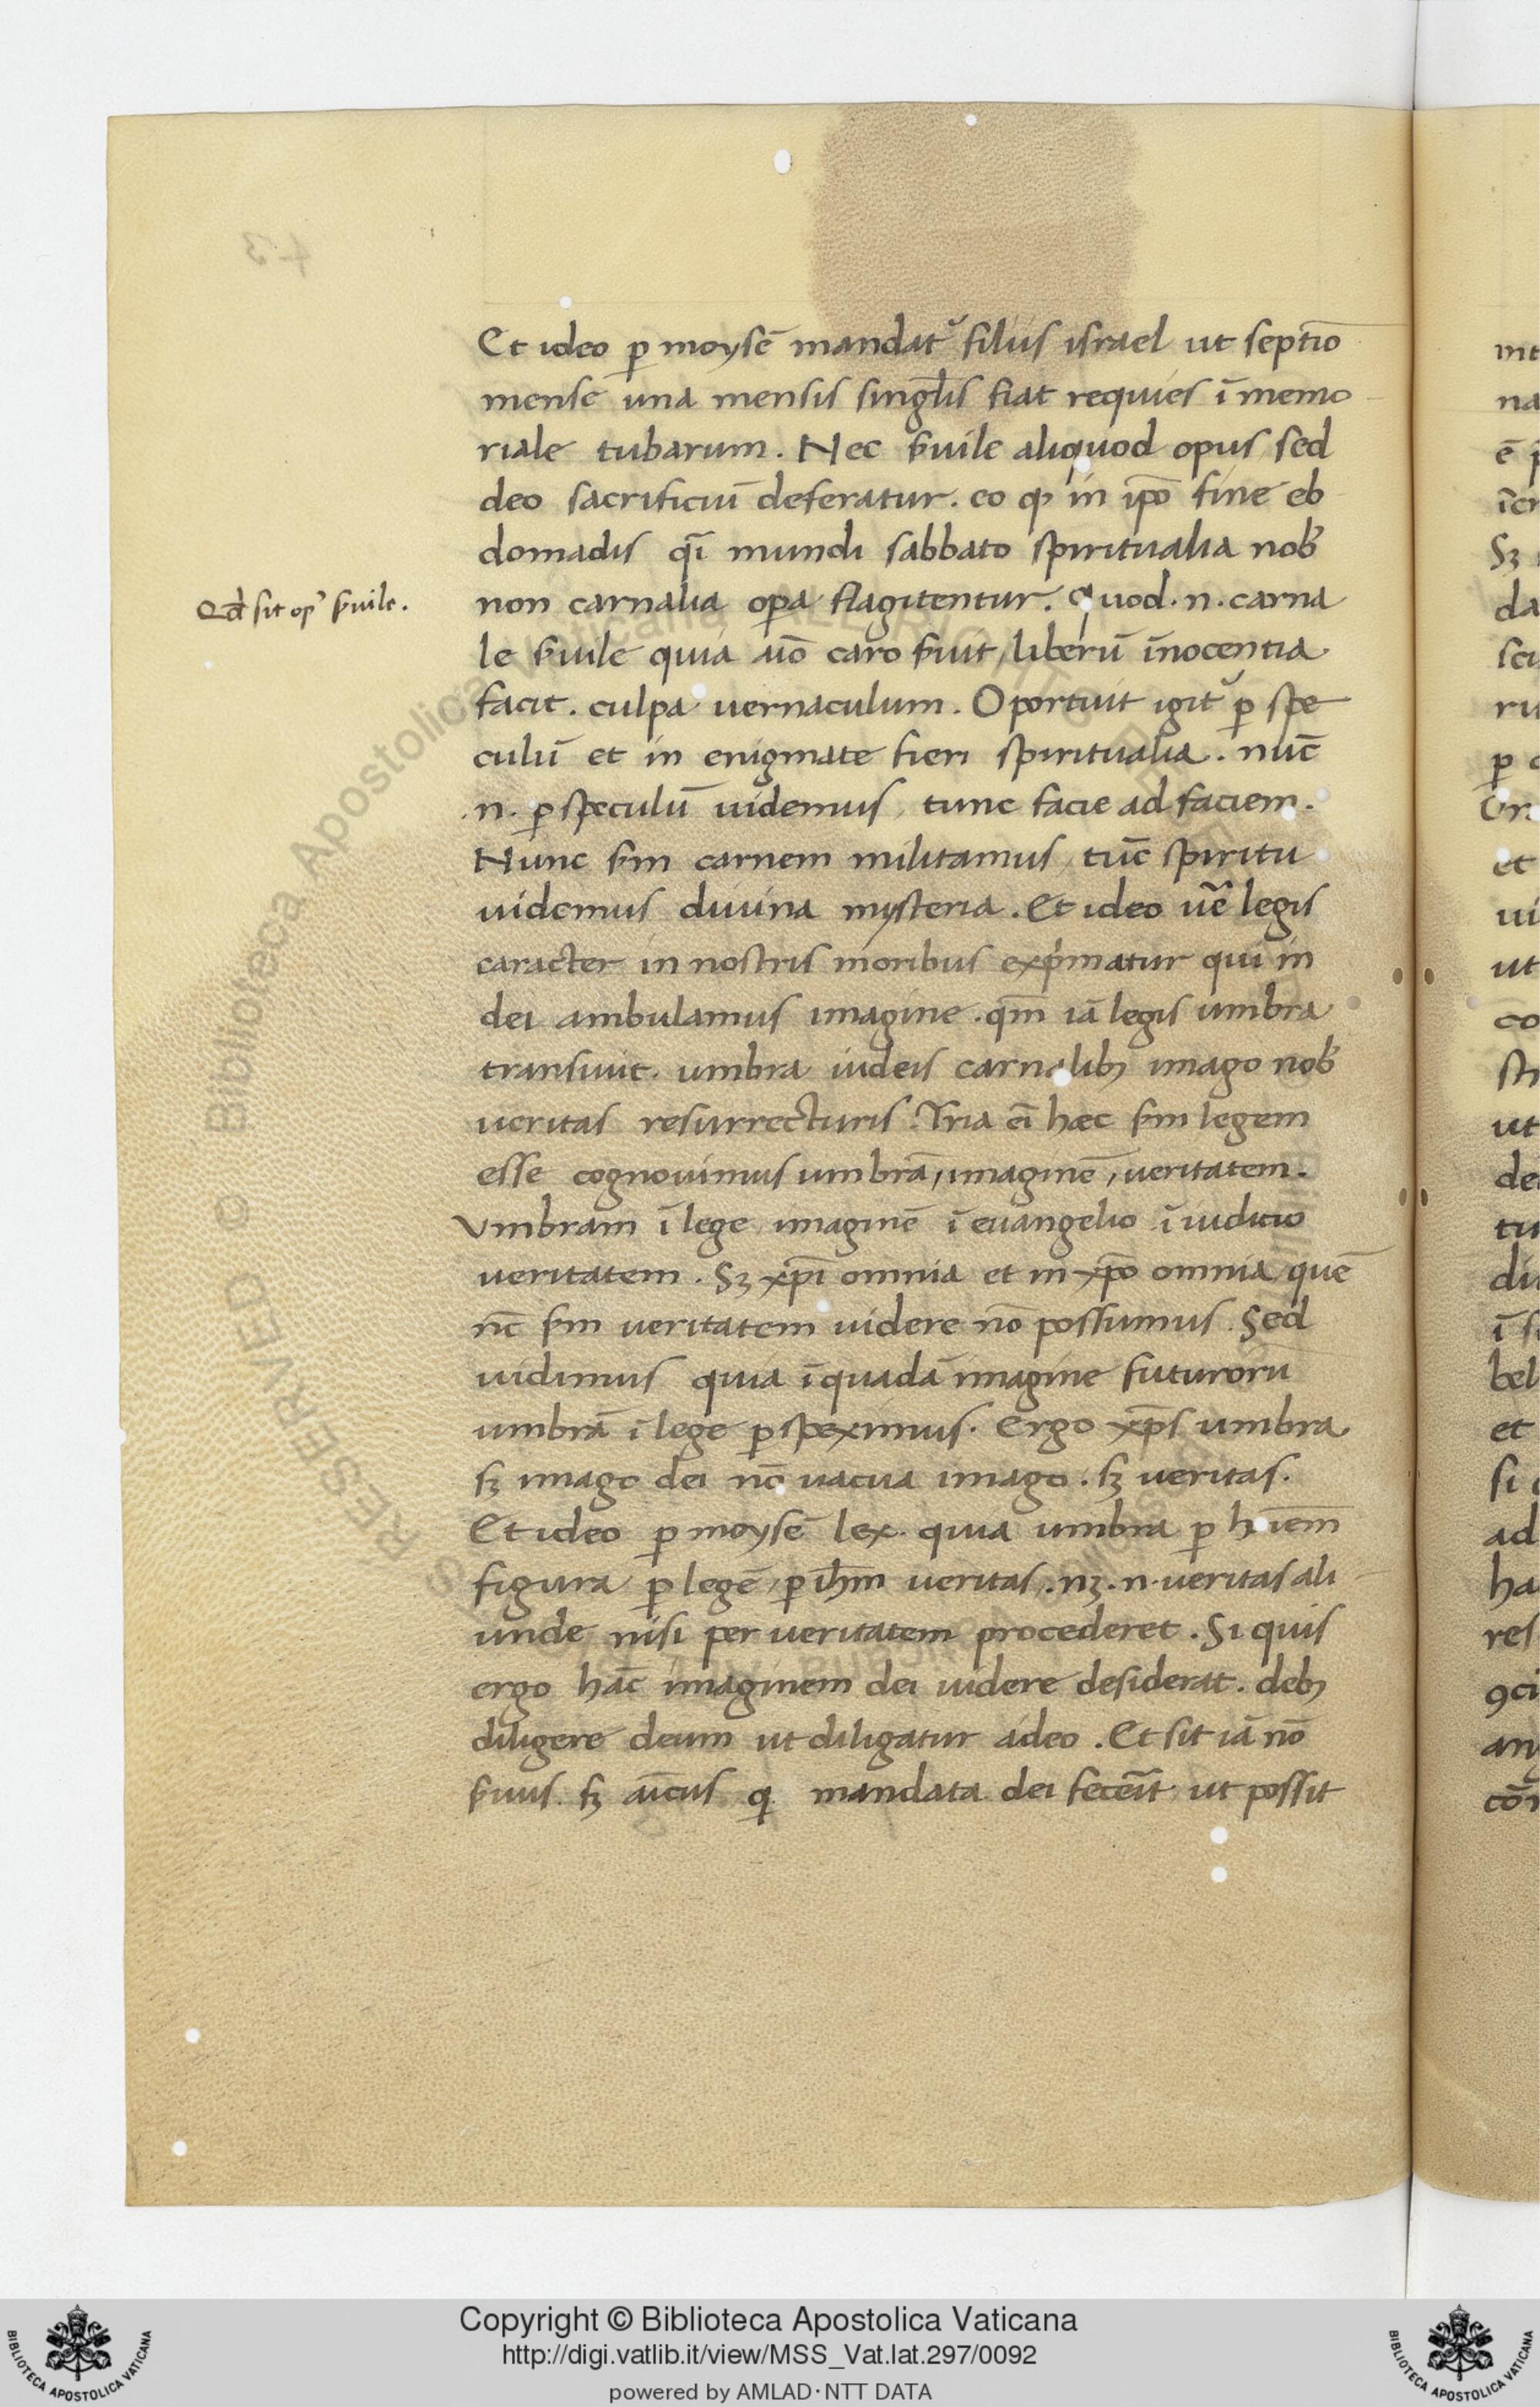 Et ideo ꝑ moysē mandat᷑ filiis israel ut septīo
mense una mensis singl̄is fiat requies ī memo
riale tubarum. Nec s̄uile aliquod opus sed
deo sacrificiū deferatur. eo ꝙ in ip̄o fine eb
domadis q̄i mundi sabbato spiritualia nob̄
non carnalia oꝑa flagitentur. Quod .n. carna
le s̄uile quia uīo caro s̄uit, liberū īnocentia
facit. culpa uernaculum. Oportuit igit᷑ ꝑ spe
culū et in enigmate fieri spiritualia. nūc
.n. ꝑ speculū uidemus, tunc facie ad faciem.
Nunc s̄m carnem militamus, tūc spiritu
uidemus diuina mysteria. Et ideo ūe legis
caracter in nostris moribus exp̄matur qui in
dei ambulamus imagine. qm̄ iā legis umbra
transiuit. umbra iudeis carnalibꝫ imago nob̄
ueritas resurrecturis. Tria ēi hæc s̄m legem
esse cognouimus umbrā, imaginē, ueritatem.
Vmbram ī lege imaginē ī euangelio ī iuditio
ueritatem. Sꝫ xp̄i omnia et in xp̄o omnia, quē
nc̄ s̄m ueritatem uidere nō possumus. Sed
uidimus quia ī quadā imagine futuroru
umbrā ī lege ꝑspeximus. Ergo xp̄s umbra
sꝫ imago dei nō uacua imago. sꝫ ueritas.
Et ideo ꝑ moysē lex. quia umbra ꝑ hōiem
figura ꝑ legē, ꝑ ih̄m ueritas. nꝫ .n. ueritas ali
unde nisi per ueritatem procederet. Si quis
ergo hāc imaginem dei uidere desiderat. debꝫ
diligere deum ut diligatur adeo. Et sit iā nō
s̄uus sꝫ aīcus q mandata dei fecēit ut possit
Qd̄ sit opꝰ s̄uile.
43
Copyright © Biblioteca Apostolica Vaticana
http://digi.vatlib.it/view/MSS_Vat.lat.297/0092
powered by AMLAD·NTT DATA
BIBLIOTECA APOSTOLICA VATICANA
BIBLIOTECA APOSTOLICA VATICANA